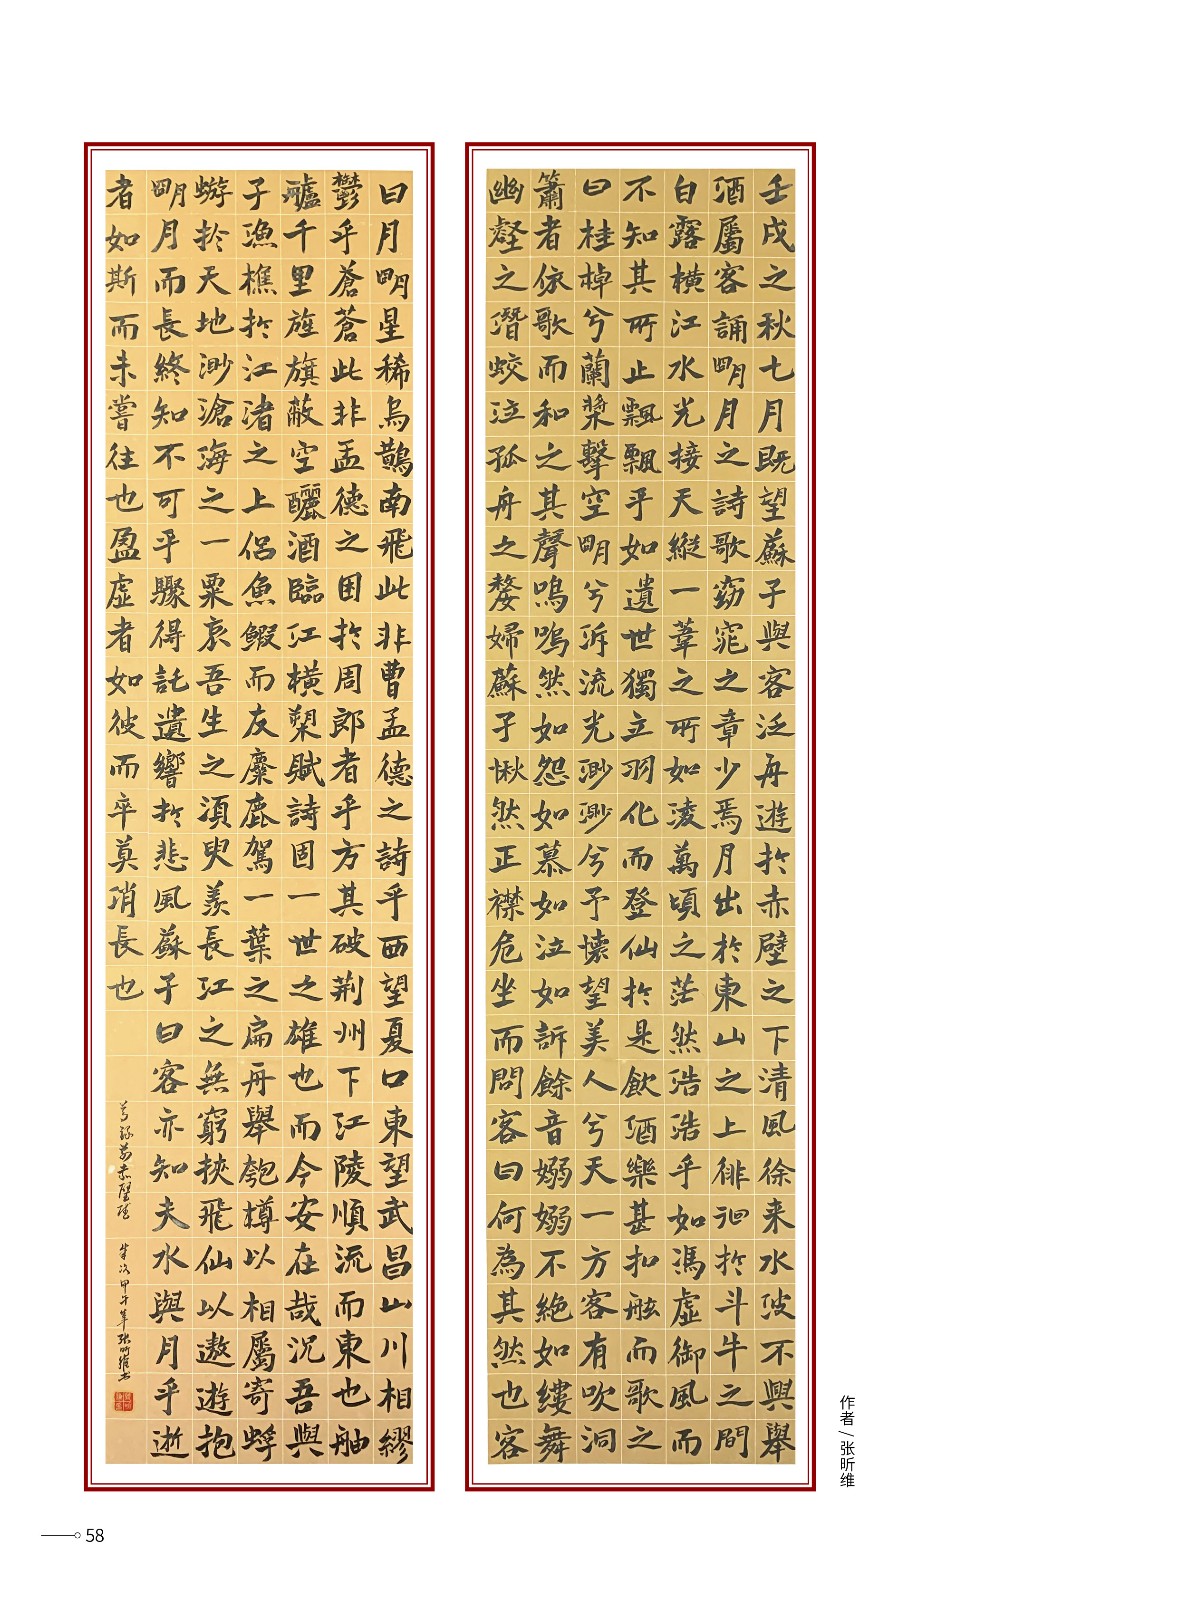 壬戌之秋七月既望蘇子與客泛舟遊於赤壁之下清風徐来水波不興舉
酒屬客誦明月之詩歌窈窕之章少焉月出於東山之上徘徊於斗牛之間
白露橫江水光接天縱一葦之所如淩萬頃之茫然浩浩乎如馮虛御風而
不知其所止飄飄乎如遺世獨立羽化而登仙於是飲酒樂甚扣舷而歌之
曰桂棹兮蘭槳擊空明兮泝流光渺渺兮予懷望美人兮天一方客有吹洞
簫者依歌而和之其聲嗚嗚然如怨如慕如泣如訴餘音嫋嫋不絕如縷舞
幽壑之潛蛟泣孤舟之嫠婦蘇子愀然正襟危坐而問客曰何為其然也客
曰月明星稀烏鵲南飛此非曹孟德之詩乎西望夏口東望武昌山川相繆
鬱乎蒼蒼此非孟德之困於周郎者乎方其破荊州下江陵順流而東也舳
艫千里旌旗蔽空釃酒臨江橫槊賦詩固一世之雄也而今安在哉況吾與
子漁樵於江渚之上侶魚鰕而友麋鹿駕一葉之扁舟舉匏樽以相屬寄蜉
蝣於天地渺滄海之一粟哀吾生之須臾羨長江之無窮挾飛仙以遨遊抱
明月而長終知不可乎驟得託遺響於悲風蘇子曰客亦知夫水與月乎逝
者如斯而未嘗往也盈虛者如彼而卒莫消長也
节録前赤壁賦 歲次甲午年張昕維書
作者/张昕维
58